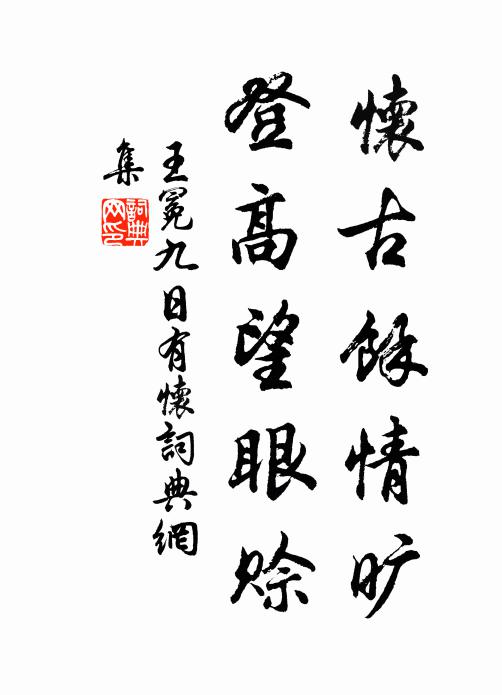 懷古餘情旷
登高望眼賒
王冕九日有懷詞典網
集
詞典
网印